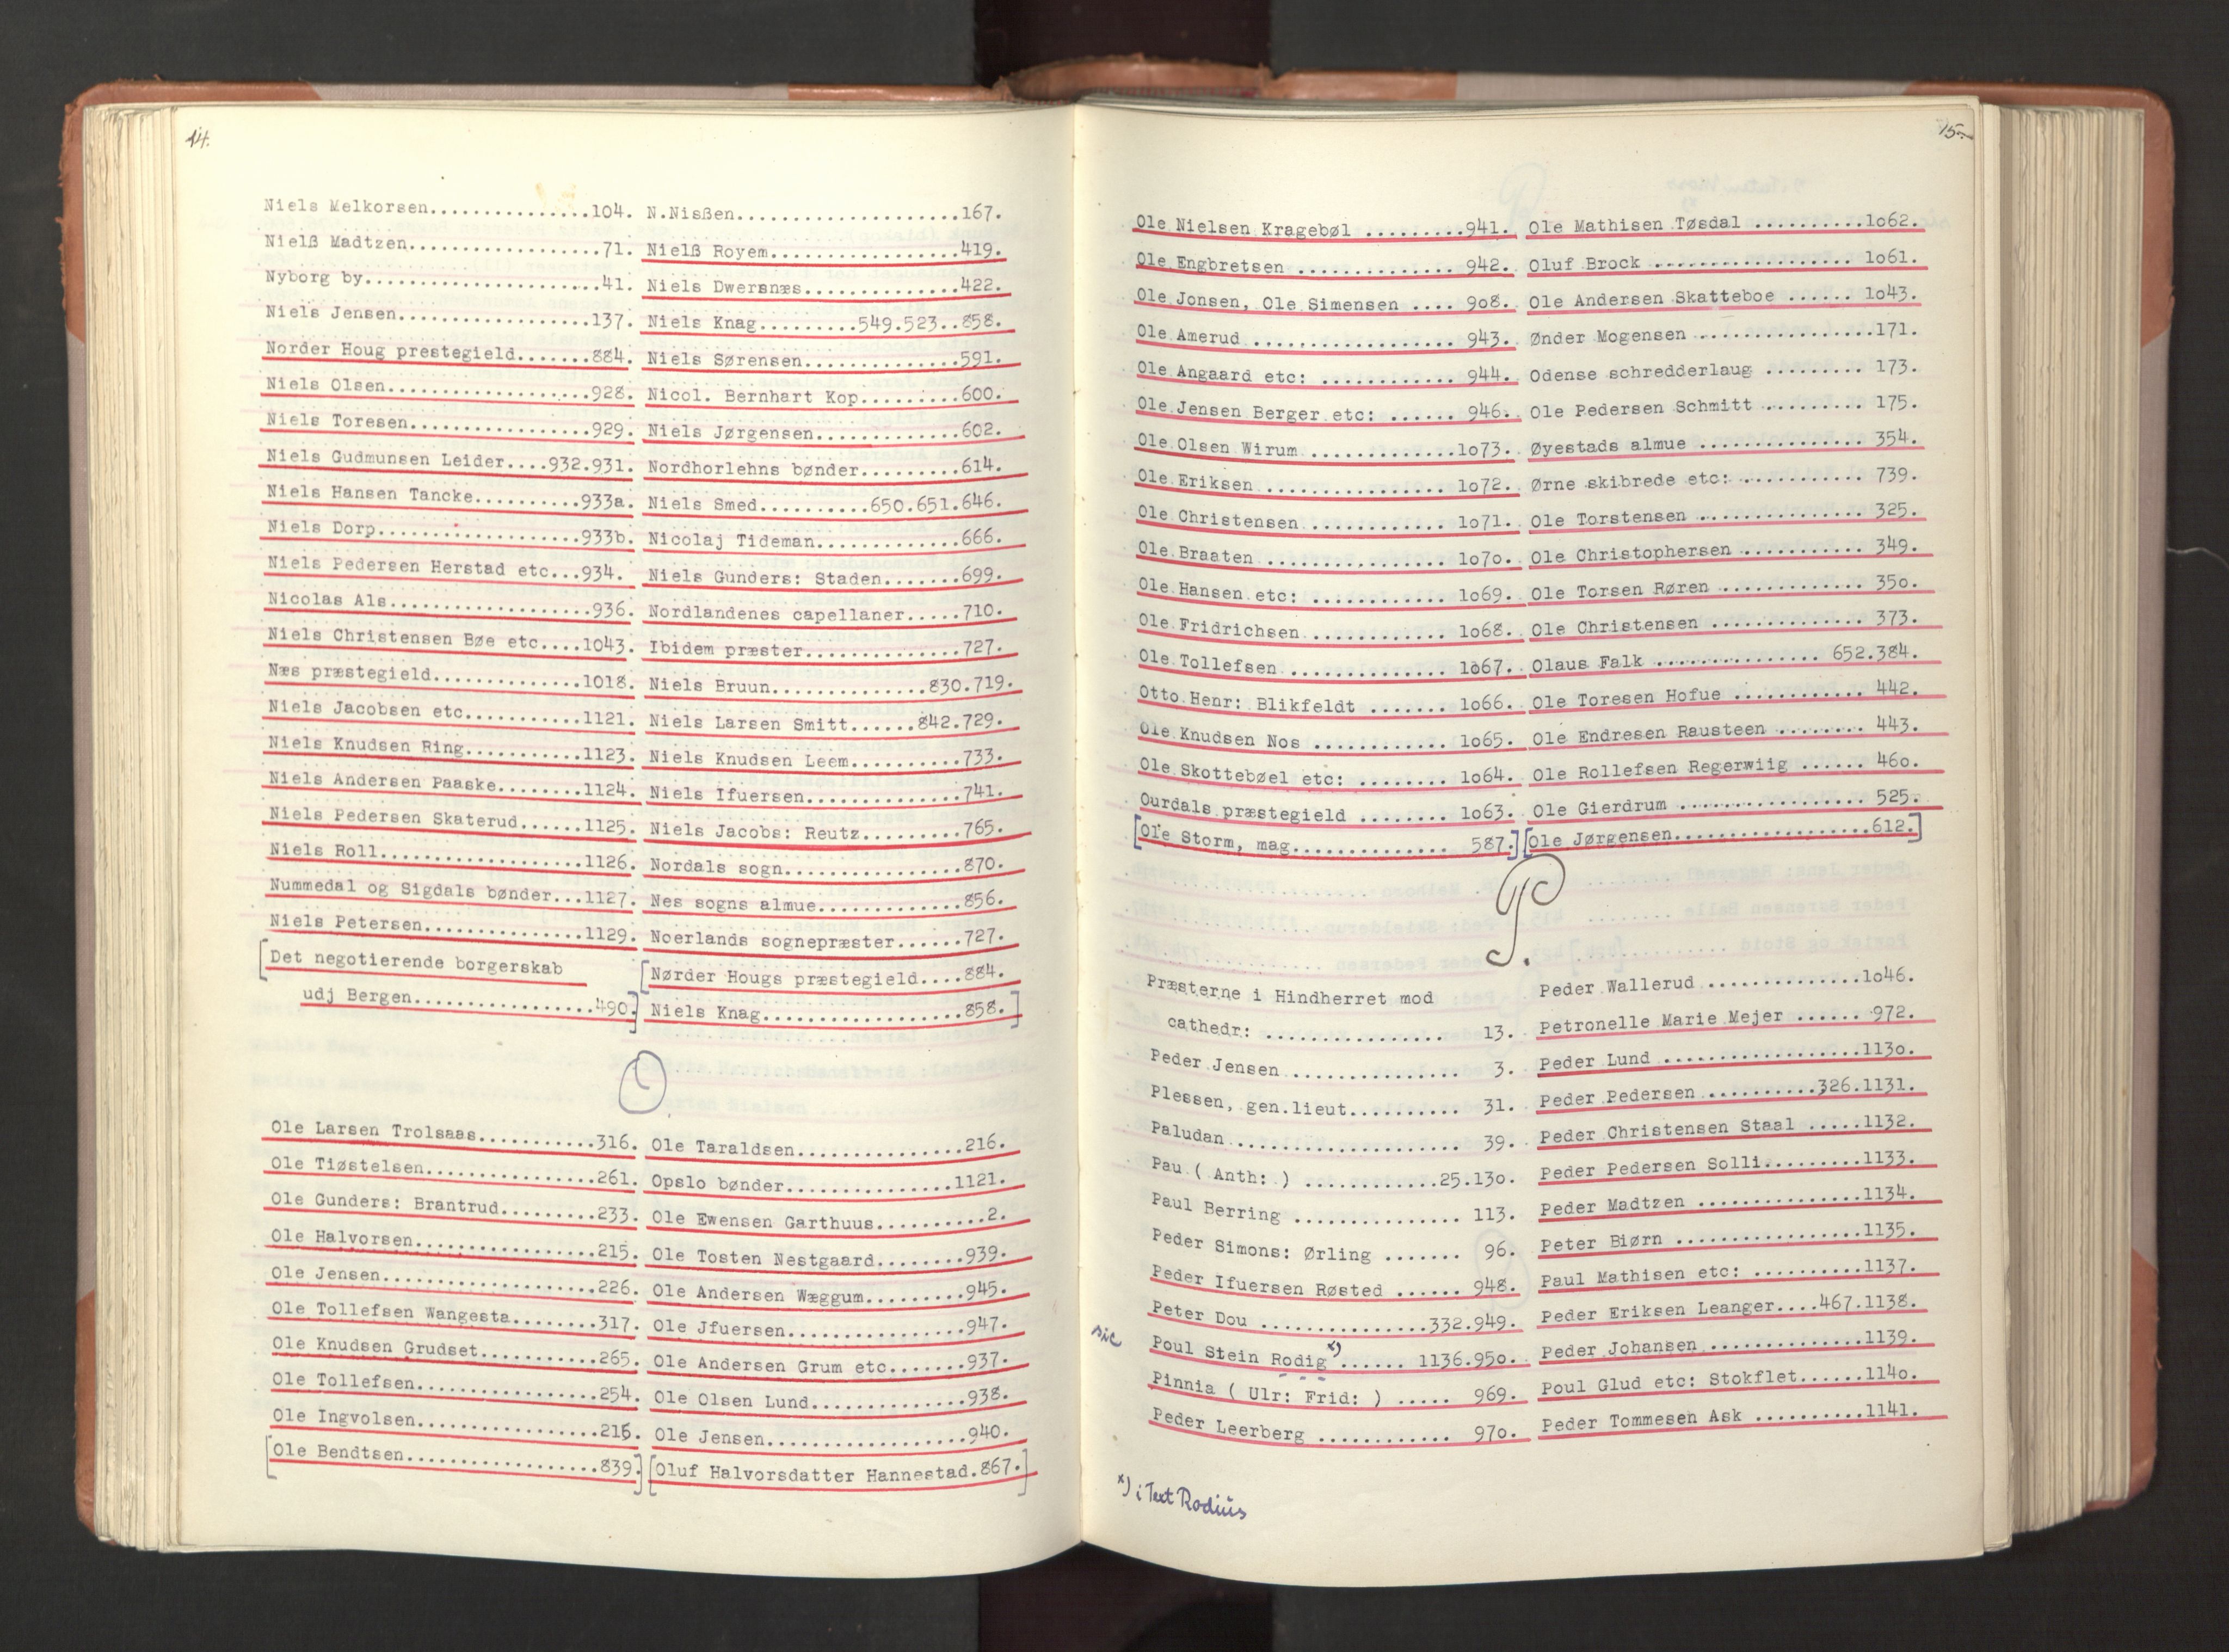 14.
Niels Melkorsen...............104.
Nielß Madtzen..................71.
Nyborg by......................41.
Niels Jensen..................137.
Norder Houg prestegield.......884.
Niels Olsen...................928.
Niels Toresen.................929.
Niels Gudmunsen Leider....932.931.
Niels Hansen Tancke..........933a.
Niels Dorp...................933b.
Niels Pedersen Herstad etc...934.
Nicolas Als...................936.
Niels Christensen Bøe etc....1043.
Næs præstegield..............1018.
Niels Jacobsen etc...........1121.
Niels Knudsen Ring...........1123.
Niels Andersen Paaske........1124.
Niels Pedersen Skaterud......1125.
Niels Roll...................1126.
Nummedal og Sigdals bønder...1127.
Niels Petersen...............1129.
[Det negotierende borgerskab
udj Bergen.................490.]
N.Nisßen.....................167.
Nielß Royem..................419.
Niels Dwersnæs...............422.
Niels Knag.........549.523..858.
Niels Sørensen...............591.
Nicol. Bernhart Kop..........600.
Niels Jørgensen..............602.
Nordhorlehns bønder..........614.
Niels Smed..........650.651.646.
Nicolaj Tideman..............666.
Niels Gunders: Staden.......699.
Nordlandenes capellaner.....710.
Ibidem præster...............727.
Niels Bruun...............830.719.
Niels Larsen Smitt......842.729.
Niels Knudsen Leem..........733.
Niels Ifuersen...............741.
Niels Jacobs: Reutz.........765.
Nordals sogn.................870.
Nes sogns almue..............856.
Noerlands sognepræster......727.
[Nørder Hougs præstegield....884.
Niels Knag...................858.]
O.
Ole Larsen Trolsaas...........316.
Ole Tiøstelsen................261.
Ole Gunders: Brantrud.........233.
Ole Halvorsen.................215.
Ole Jensen....................226.
Ole Tollefsen Wangesta........317.
Ole Knudsen Grudset...........265.
Ole Tollefsen.................254.
Ole Ingvolsen.................216.
[Ole Bendtsen..................839.]
Ole Taraldsen................216.
Opslo bønder................1121.
Ole Ewensen Garthuus..........2.
Ole Tosten Nestgaard........939.
Ole Andersen Wæggum.........945.
Ole Jfuersen.................947.
Ole Andersen Grum etc.......937.
Ole Olsen Lund...............938.
Ole Jensen...................940.
[Oluf Halvorsdatter Hannestad.867.]
15.
Ole Nielsen Kragebøl .........941.
Ole Engbretsen .............. 942.
Ole Jonsen, Ole Simensen .... 908.
Ole Amerud ................... 943.
Ole Angaard etc: ............ 944.
Ole Jensen Berger etc: ...... 946.
Ole Olsen Wirum .............1o73.
Ole Eriksen ................. 1o72.
Ole Christensen ............. 1o71.
Ole Braaten ................. 1o7o.
Ole Hansen etc: ............. 1o69.
Ole Fridrichsen ............. 1o68.
Ole Tollefsen ............... 1o67.
Otto Henr: Blikfeldt ....... 1o66.
Ole Knudsen Nos ............. 1o65.
Ole Skottebøel etc: ........ 1o64.
Ourdals præstegield ........ 1o63.
[Ole Storm, mag.............. 587.]
Ole Mathisen Tøsdal ..........1o62.
Oluf Brock .................. 1o61.
Ole Andersen Skatteboe ...... 1o43.
Ønder Mogensen ................171.
Odense schredderlaug ......... 173.
Ole Pedersen Schmitt ......... 175.
Øyestads almue ............... 354.
Ørne skibrede etc: ........... 739.
Ole Torstensen ............... 325.
Ole Christophersen ........... 349.
Ole Torsen Røren ............. 35o.
Ole Christensen .............. 373.
Olaus Falk ............... 652.384.
Ole Toresen Hofue ............ 442.
Ole Endresen Rausteen ........ 443.
Ole Rollefsen Regerwiig ...... 46o.
Ole Gierdrum ................. 525.
[Ole Jørgensen..................612.]
P.
Præsterne i Hindherret mod
cathedr: ................. 13.
Peder Jensen ................ 3.
Plessen, gen.lieut.......... 31.
Paludan ..................... 39.
Pau ( Anth: ) ............25.13o.
Paul Berring ............... 113.
Peder Simons: Ørling ....... 96.
Peder Ifuersen Røsted ...... 948.
Peter Dou ...............332.949.
sic Poul Stein Rodig x)...... 1136.95o.
Pinnia ( Ulr: Frid: ) ..... 969.
Peder Leerberg ............ 97o.
Peder Wallerud ..............1o46.
Petronelle Marie Mejer ...... 972.
Peder Lund ..................113o.
Peder Pedersen ..........326.1131.
Peder Christensen Staal .....1132.
Peder Pedersen Solli.........1133.
Peder Madtzen ...............1134.
Peter Biørn .................1135.
Paul Mathisen etc: ..........1137.
Peder Eriksen Leanger....467.1138.
Peder Johansen ..............1139.
Poul Glud etc: Stokflet......114o.
Peder Tommesen Ask ..........1141.
x) i Text Rodiús